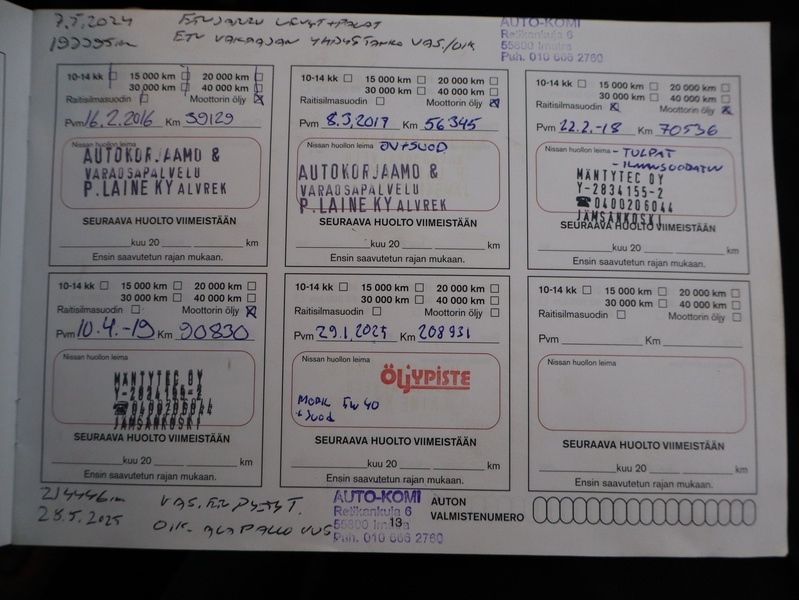 7.5.2024 ETUJARRU LEVYT+PALAT
192295km ETU VAKAAJAN YHDYSTANKO VAS./OIK
AUTO-KOMI
Retikankuja 6
55800 Imatra
Puh. 010 666 2760
10-14 kk 15 000 km 20 000 km
30 000 km 40 000 km
Raitisilmasuodin Moottorin öljy
Pvm 16.2.2016 Km 39129
Nissan huollon leima
AUTOKORJAAMO &
VARAOSAPALVELU
P.LAINE KY ALVREK
SEURAAVA HUOLTO VIIMEISTÄÄN
kuu 20 km
Ensin saavutetun rajan mukaan.
10-14 kk 15 000 km 20 000 km
30 000 km 40 000 km
Raitisilmasuodin Moottorin öljy
Pvm 8.3.2017 Km 56345
Nissan huollon leima ÖV+SUOD
AUTOKORJAAMO &
VARAOSAPALVELU
P.LAINE KY ALVREK
SEURAAVA HUOLTO VIIMEISTÄÄN
kuu 20 km
Ensin saavutetun rajan mukaan.
10-14 kk 15 000 km 20 000 km
30 000 km 40 000 km
Raitisilmasuodin Moottorin öljy
Pvm 22.2.-18 Km 70536
Nissan huollon leima - TULPAT
- ILMANSUODATIN
MÄNTYTEC OY
Y-2834155-2
☎0400206044
JÄMSÄNKOSKI
SEURAAVA HUOLTO VIIMEISTÄÄN
kuu 20 km
Ensin saavutetun rajan mukaan.
10-14 kk 15 000 km 20 000 km
30 000 km 40 000 km
Raitisilmasuodin Moottorin öljy
Pvm 10.4.-19 Km 90830
Nissan huollon leima
MÄNTYTEC OY
Y-2834155-2
☎0400206044
JÄMSÄNKOSKI
SEURAAVA HUOLTO VIIMEISTÄÄN
kuu 20 km
Ensin saavutetun rajan mukaan.
10-14 kk 15 000 km 20 000 km
30 000 km 40 000 km
Raitisilmasuodin Moottorin öljy
Pvm 29.1.2025 Km 208931
Nissan huollon leima
ÖLJYPISTE
5W40
+ suod
SEURAAVA HUOLTO VIIMEISTÄÄN
kuu 20 km
Ensin saavutetun rajan mukaan.
10-14 kk 15 000 km 20 000 km
30 000 km 40 000 km
Raitisilmasuodin Moottorin öljy
Pvm Km
Nissan huollon leima
SEURAAVA HUOLTO VIIMEISTÄÄN
kuu 20 km
Ensin saavutetun rajan mukaan.
214446km VAS. ETU PYÖR
28.5.2025 OIK. ALAPALLO
AUTO-KOMI
Retikankuja 6
55800 Imatra
Puh. 010 666 2760
13
AUTON
VALMISTENUMERO